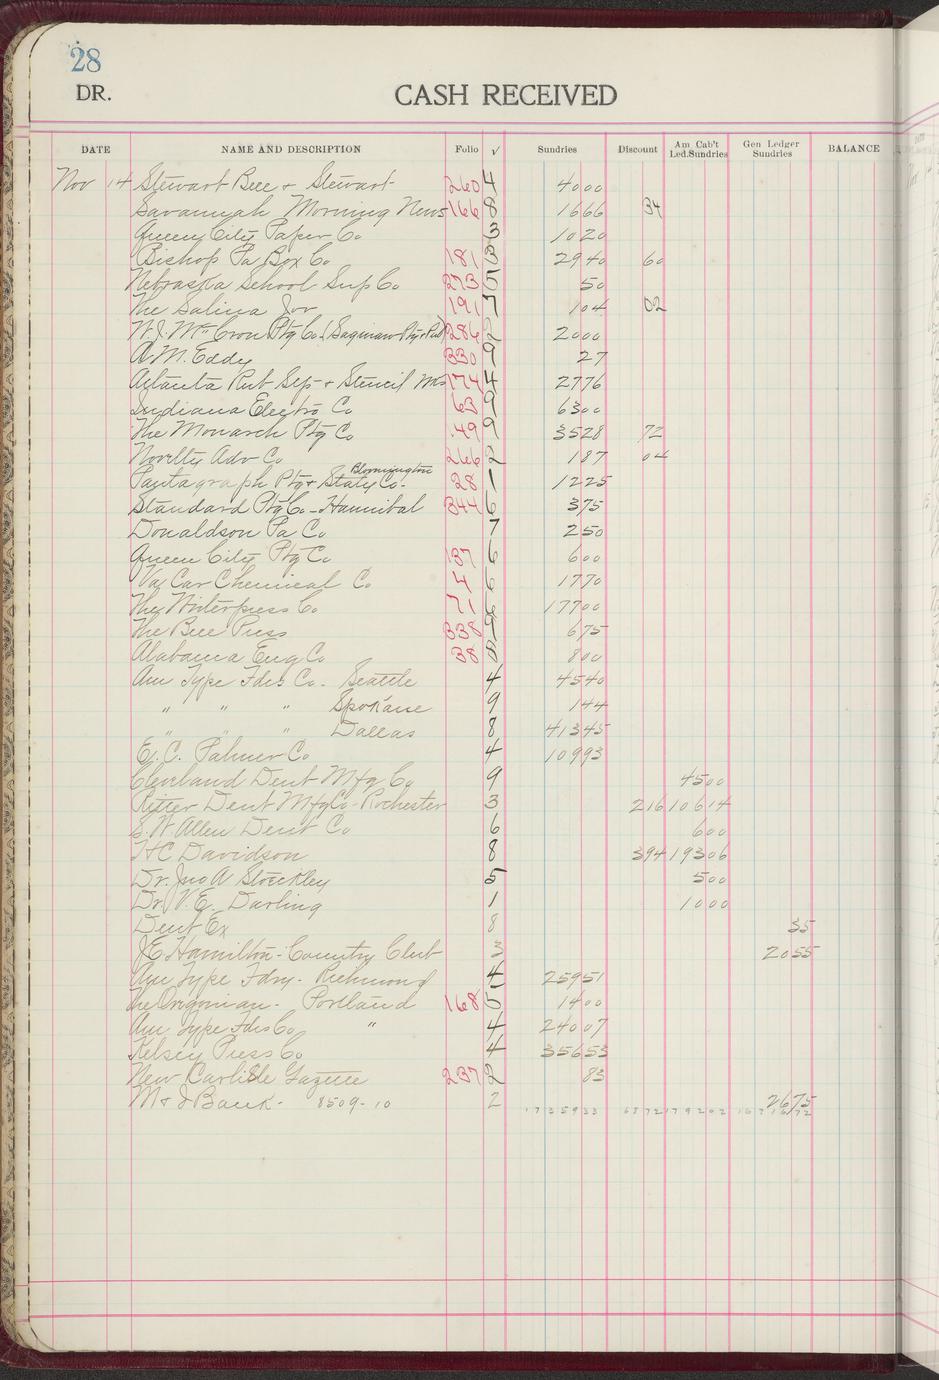 28
DR. CASH RECEIVED
DATE NAME AND DESCRIPTION Folio √ Sundries Discount Am Cab't Led.Sundries Gen Ledger Sundries BALANCE
Nov 14 Stewart Bece + Stewart 260 4 4000
Savannah Morning News 166 8 1666 34
Queen City Paper Co 3 1020
Bishop Pa Box Co 181 3 2940 60
Nebraska School Sup Co 273 5 50
The Salina Jor 191 7 104 02
W.J. McCron Ptg Co. (Saginaw Ptg + Pub) 286 2 2000
A M. Eddy 330 9 27
Atlanta Rub Sep + Stencil Wks 174 4 2776
Indiana Electro Co 63 9 6300
The Monarch Ptg Co 49 9 3528 72
Novelty Adv Co 266 2 187 04
Bloomington
Pantagraph Ptg + Staty Co. 28 1 1225
Standard Ptg Co - Hannibal 344 6 375
Donaldson Pa Co 7 250
Queen City Ptg Co 137 6 600
Va Car Chemical Co 4 6 1770
The Winterpress Co 71 6 17700
The Bece Press 338 9 675
Alabama Eng Co 38 8 800
Am Type Fdrs Co. Seattle 4 4540
" " " Spokane 9 144
" " " Dallas 8 41345
E. C. Palmer Co 4 10993
Cleveland Dent Mfg Co 9 4500
Ritter Dent Mfg Co - Rochester 3 216 10614
S. W. Allen Dent Co 6 600
HC Davidson 8 394 19306
Dr. Jno A Stockley 5 500
Dr. V. E. Darling 1 1000
Dent Ex 8 35
JE Hamilton - Country Club 3 2055
Am Type Fdry - Richmond 4 25951
The Oregonian - Portland 168 5 1400
Am Type Fdrs Co " 4 24007
Kelsey Press Co 4 35653
New Carlisle Gazette 237 2 83
M + I Bank - 8509-10 2 2675
1735933 6872 179202 1671672